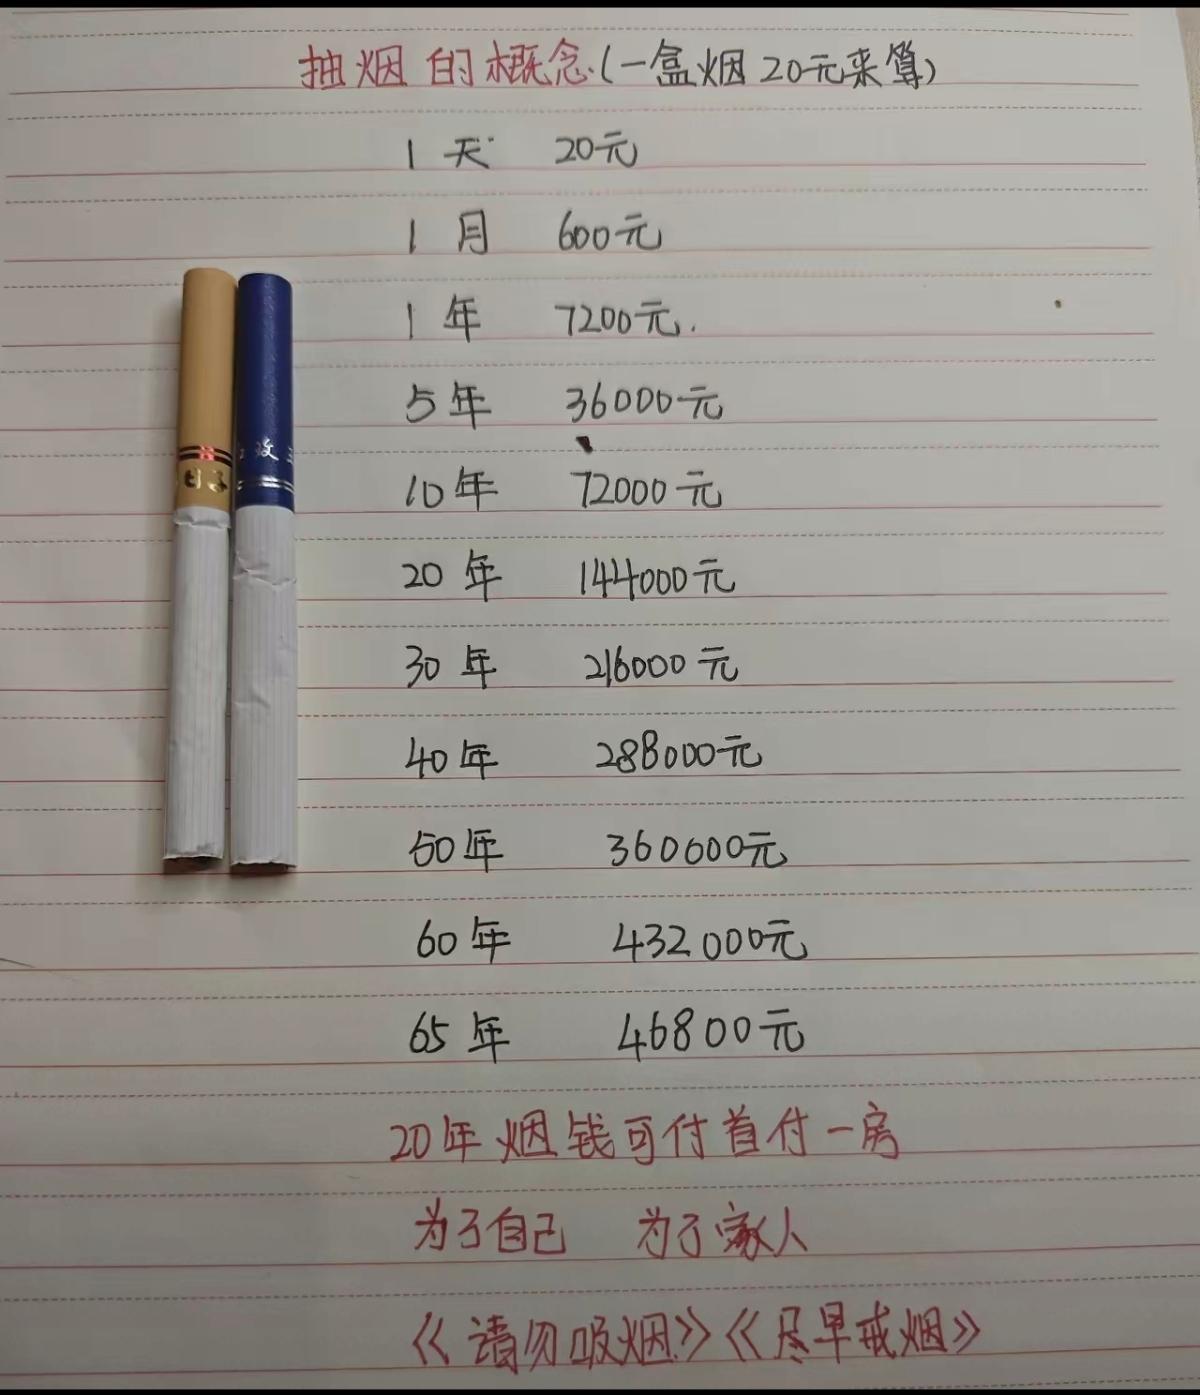 抽烟的概念(一盒烟20元来算)
1天 20元
1月 600元
1年 7200元.
5年 36000元
10年 72000元
20年 144000元
30年 216000元
40年 288000元
50年 360000元
60年 432000元
65年 46800元
20年烟钱可付首付一房
为了自己 为了家人
《请勿吸烟》《尽早戒烟》